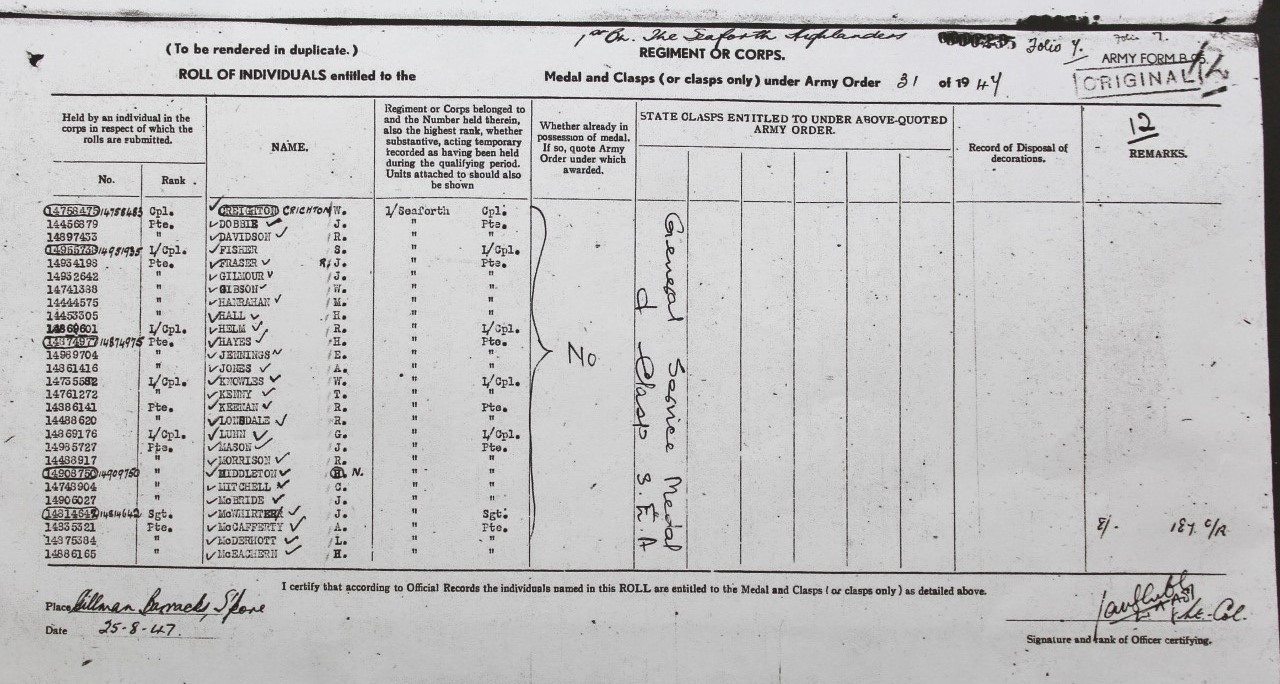 1st Bn. The Seaforth Highlanders Folio Y. Folio 7.
(To be rendered in duplicate.) REGIMENT OR CORPS. ARMY FORM B.
ROLL OF INDIVIDUALS entitled to the Medal and Clasps (or clasps only) under Army Order 31 of 1947
ORIGINAL
12
Held by an individual in the corps in respect of which the rolls are submitted.
No. Rank
NAME.
Regiment or Corps belonged to and the Number held therein, also the highest rank, whether substantive, acting temporary recorded as having been held during the qualifying period. Units attached to should also be shown
Whether already in possession of medal. If so, quote Army Order under which awarded.
STATE CLASPS ENTITLED TO UNDER ABOVE-QUOTED ARMY ORDER.
Record of Disposal of decorations.
REMARKS.
14758475 14758483 Cpl. CREIGHTON CRICHTON W. 1/Seaforth Cpl.
14456879 Pte. DOBBIE J. " Pte.
14897433 " DAVIDSON R. " "
14951935 L/Cpl. FISHER S. " L/Cpl.
14934198 Pte. FRASER R. J. " Pte.
14932642 " GILMOUR J. " "
14741338 " GIBSON W. " "
14444575 " HANRAHAN M. " "
14453305 " HALL H. " "
14869601 L/Cpl. HELM R. " L/Cpl.
14874977 14874975 Pte. HAYES H. " Pte.
14989704 " JENNINGS E. " "
14861416 " JONES A. " "
14735582 L/Cpl. KNOWLES W. " L/Cpl.
14761272 " KENNY T. " "
14386141 Pte. KEENAN R. " Pte.
14488620 " LONSDALE R. " "
14869176 L/Cpl. LUNN G. " L/Cpl.
14985727 Pte. MASON J. " Pte.
14483917 " MORRISON R. " "
14908750 14909750 " MIDDLETON H. N. " "
14748904 " MITCHELL C. " "
14906027 " McBRIDE J. " "
14814642 Sgt. McWHIRTER J. " Sgt.
14835321 Pte. McCAFFERTY A. " Pte.
14375384 " McDERMOTT L. " "
14886165 " McEACHERN H. " "
No
General Service Medal
& Clasp S.E.A
8/- 187. C/A
I certify that according to Official Records the individuals named in this ROLL are entitled to the Medal and Clasps (or clasps only) as detailed above.
Place Gillman Barracks, S'pore
Date 25-8-47.
Lt-Col.
Signature and rank of Officer certifying.